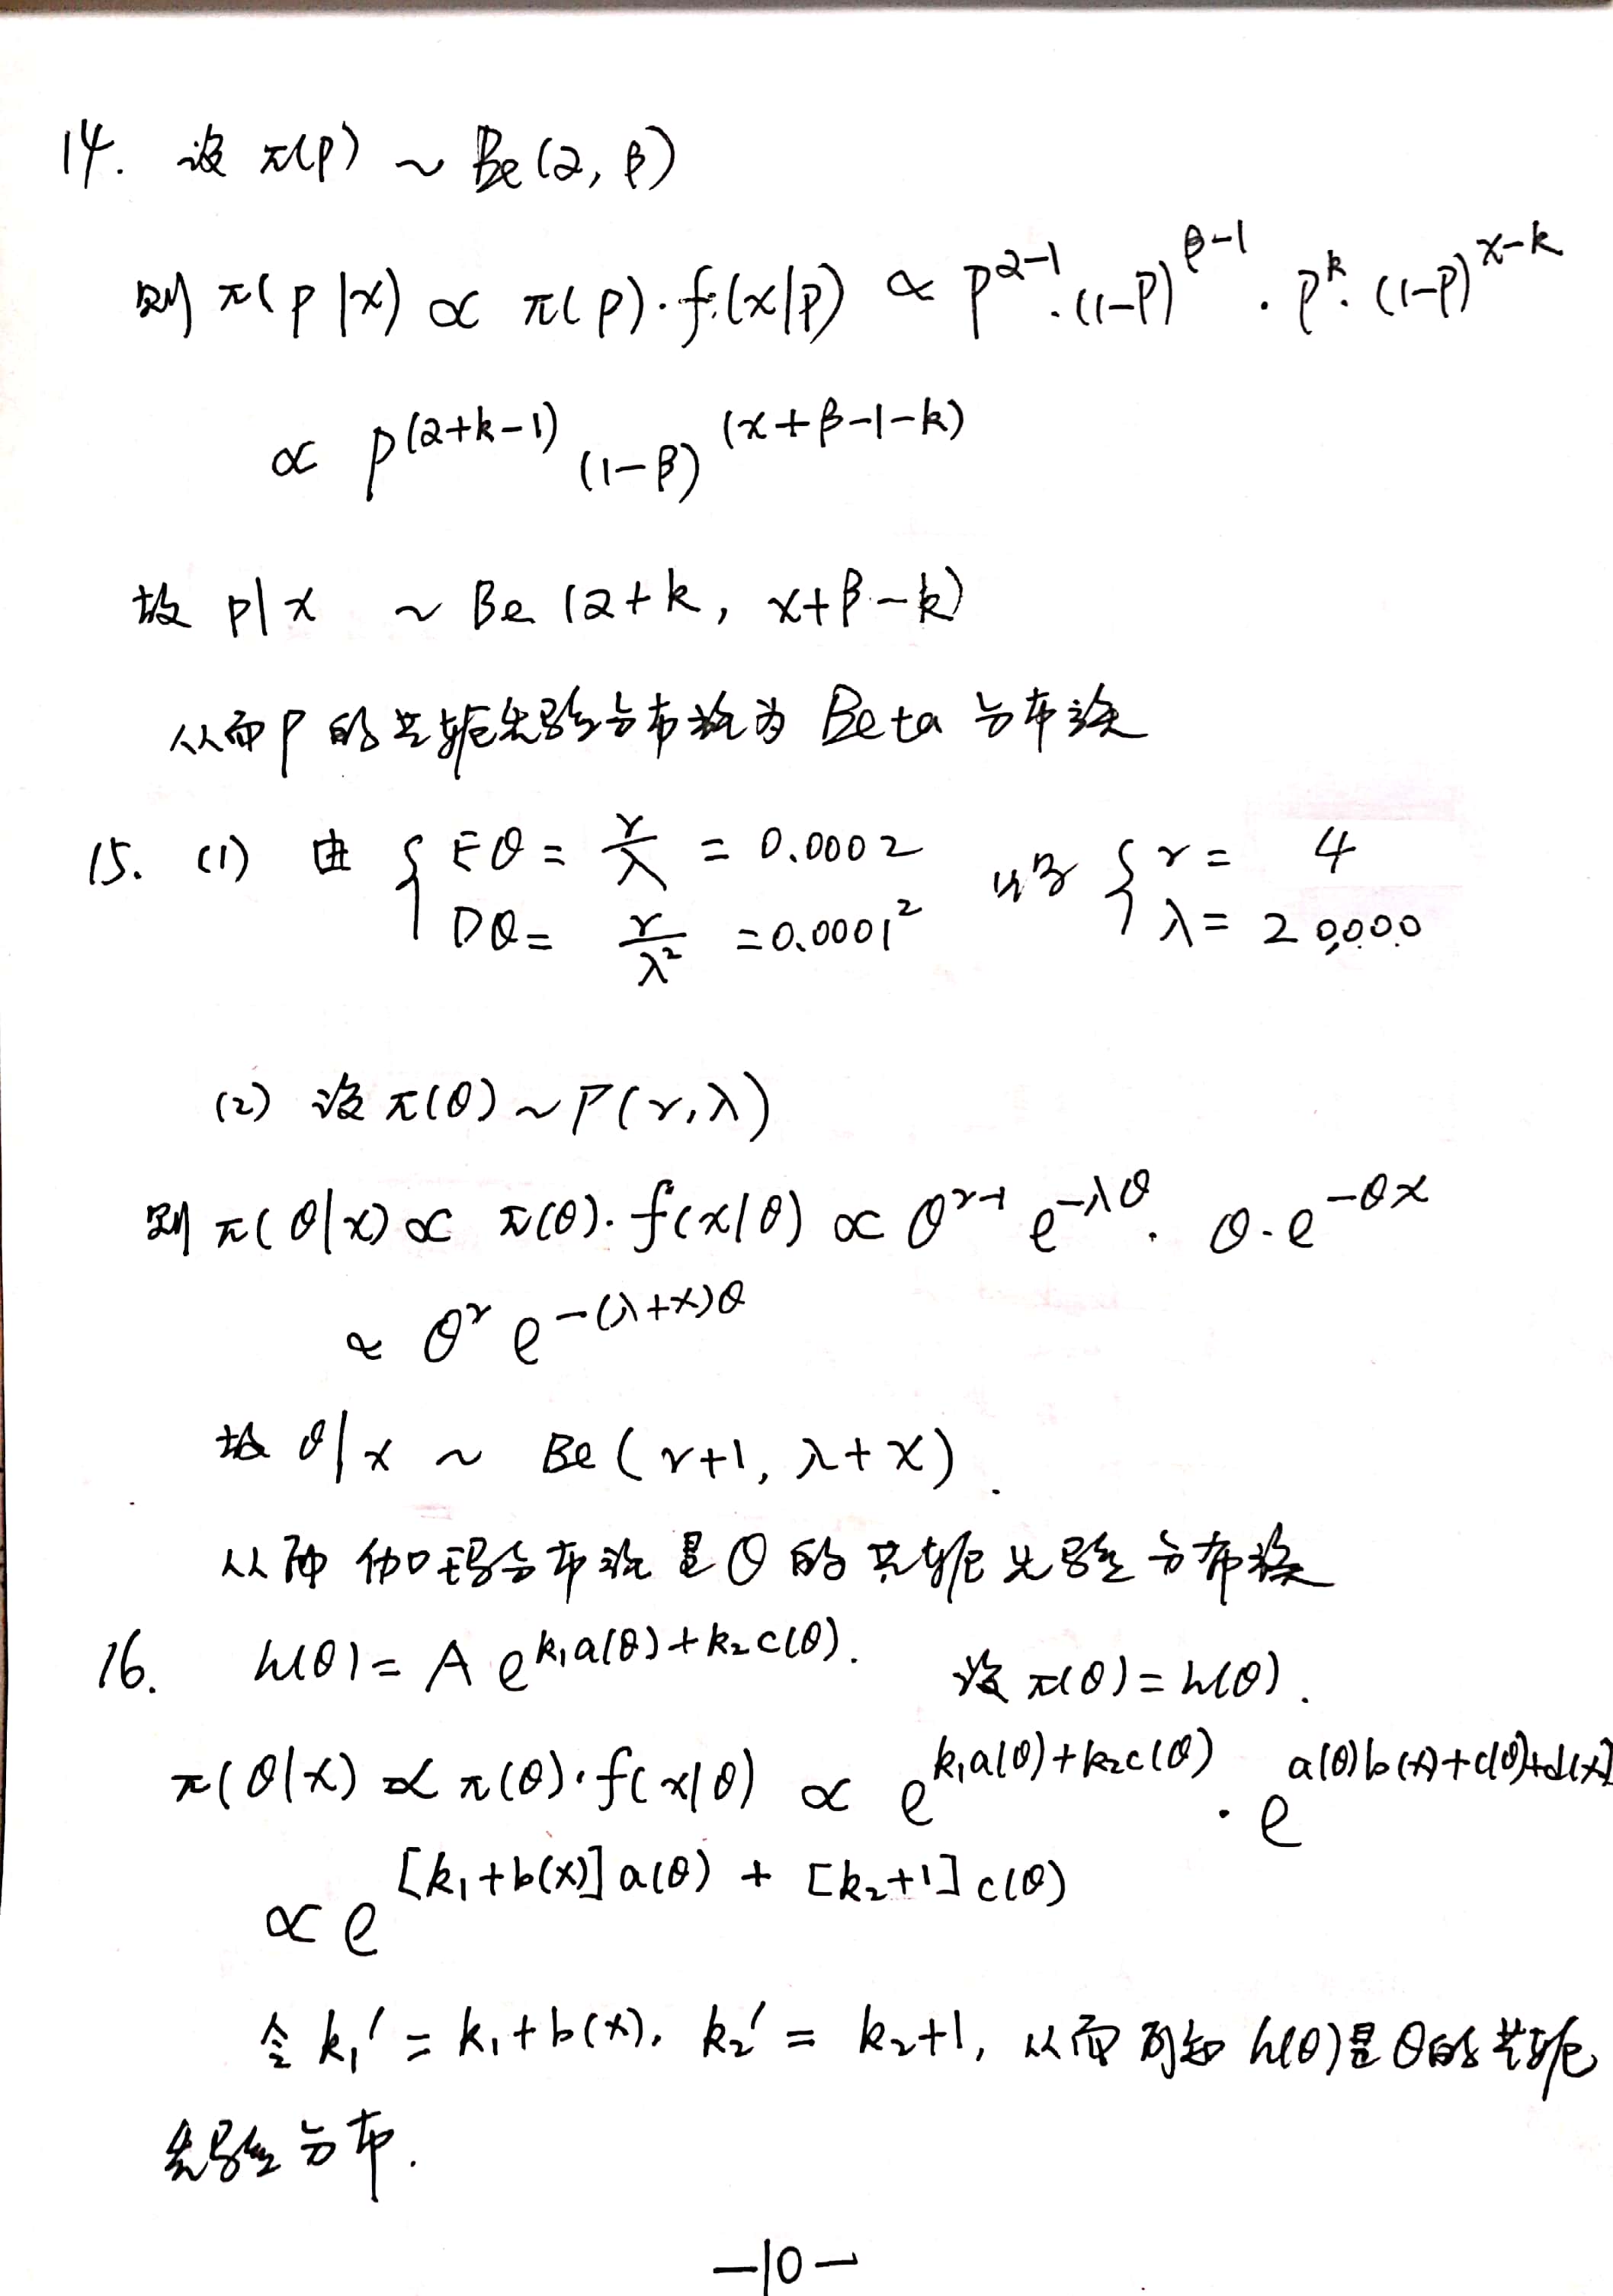 14. 设 π(p) ~ Be(α, β)
则 π(p|x) ∝ π(p)·f(x|p) ∝ p^{α-1}·(1-p)^{β-1}·p^k·(1-p)^{x-k}
∝ p^{(α+k-1)} (1-β)^{(x+β-1-k)}
故 p|x ~ Be(α+k, x+β-k)
从而p的共轭先验分布族为 Beta 分布族
15. (1) 由 { Eθ = r/λ = 0.0002 可得 { r = 4
Dθ = r/λ² = 0.0001² λ = 20,000
(2) 设 π(θ) ~ Γ(r, λ)
则 π(θ|x) ∝ π(θ)·f(x|θ) ∝ θ^{r-1} e^{-λθ}·θ·e^{-θx}
∝ θ^r e^{-(λ+x)θ}
故 θ|x ~ Be(r+1, λ+x).
从而 伽玛分布族是θ的共轭先验分布族
16. h(θ) = A e^{k₁a(θ)+k₂c(θ)}. 设 π(θ) = h(θ).
π(θ|x) ∝ π(θ)·f(x|θ) ∝ e^{k₁a(θ)+k₂c(θ)}·e^{a(θ)b(x)+c(θ)+d(x)}
∝ e^{[k₁+b(x)]a(θ) + [k₂+1]c(θ)}
令 k₁′ = k₁+b(x), k₂′ = k₂+1, 从而可知 h(θ)是θ的共轭
先验分布.
—10—